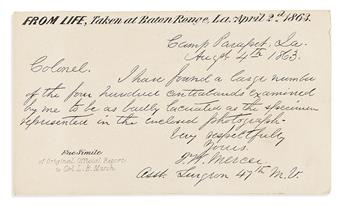 FROM LIFE, Taken at Baton Rouge, La. April 2d 1863.
Camp Parapet, La.
Augt 4th 1863.
Colonel.
I have found a large number
of the four hundred contrabands examined
by me to be as badly lacerated as the specimen
represented in the enclosed photograph.
Very respectfully
Yours.
J. W. Mercer
Asst. Surgeon 47th M.V.
Fac-Simile
of Original Official Report
to Col. L. B. March